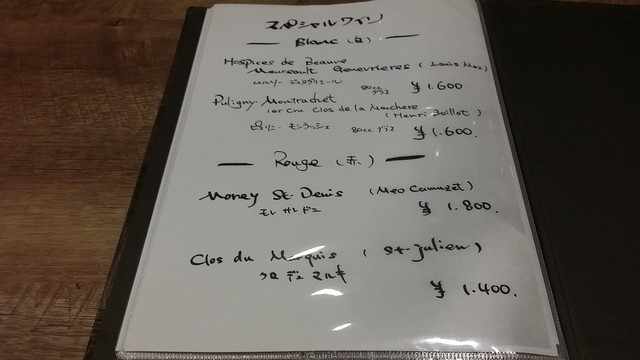 スペシャルワイン
Blanc (白)
Hospices de Beaune
Meursault Genevrieres (Louis Max)
ムルソー ジュヌヴリエール 80cc グラス ¥1.600
Puligny-Montrachet
1er Cru Clos de la Mouchere (Henri Boillot)
ピュリニー モンラッシェ 80cc グラス ¥1.600.
Rouge (赤)
Morey St-Denis (Meo Camuzet)
モレ サン ドニ ¥1.800.
Clos du Marquis (St-Julien)
クロ デュ マルキ
¥1.400.